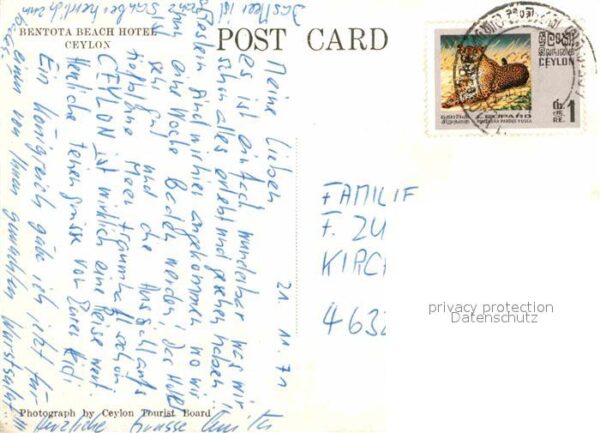 BENTOTA BEACH HOTEL
CEYLON
POST CARD
CEYLON
1
RE.
LEOPARD
PANTHERA PARDUS FUSCA
21. 11. 71
Meine Lieben
es ist einfach wunderbar was wir
schon alles erlebt und gesehen haben.
sind wir hier angekommen wo wir
eine Woche Baden werden! Das Hotel
ist sehr gut und die Ausschau aufs
Meer traumhaft schön
CEYLON ist wirklich eine Reise wert
Herzliche Feriengrüsse von Eurer Heidi
Ein Königreich gäbe ich jetzt für
einen von Ihnen gemachten Wurstsalat
Herzliche Grüsse
Das Meer ist
herrlich zum
FAMILIE
F. ZU
KIRC
4632
privacy protection
Datenschutz
Photograph by Ceylon Tourist Board